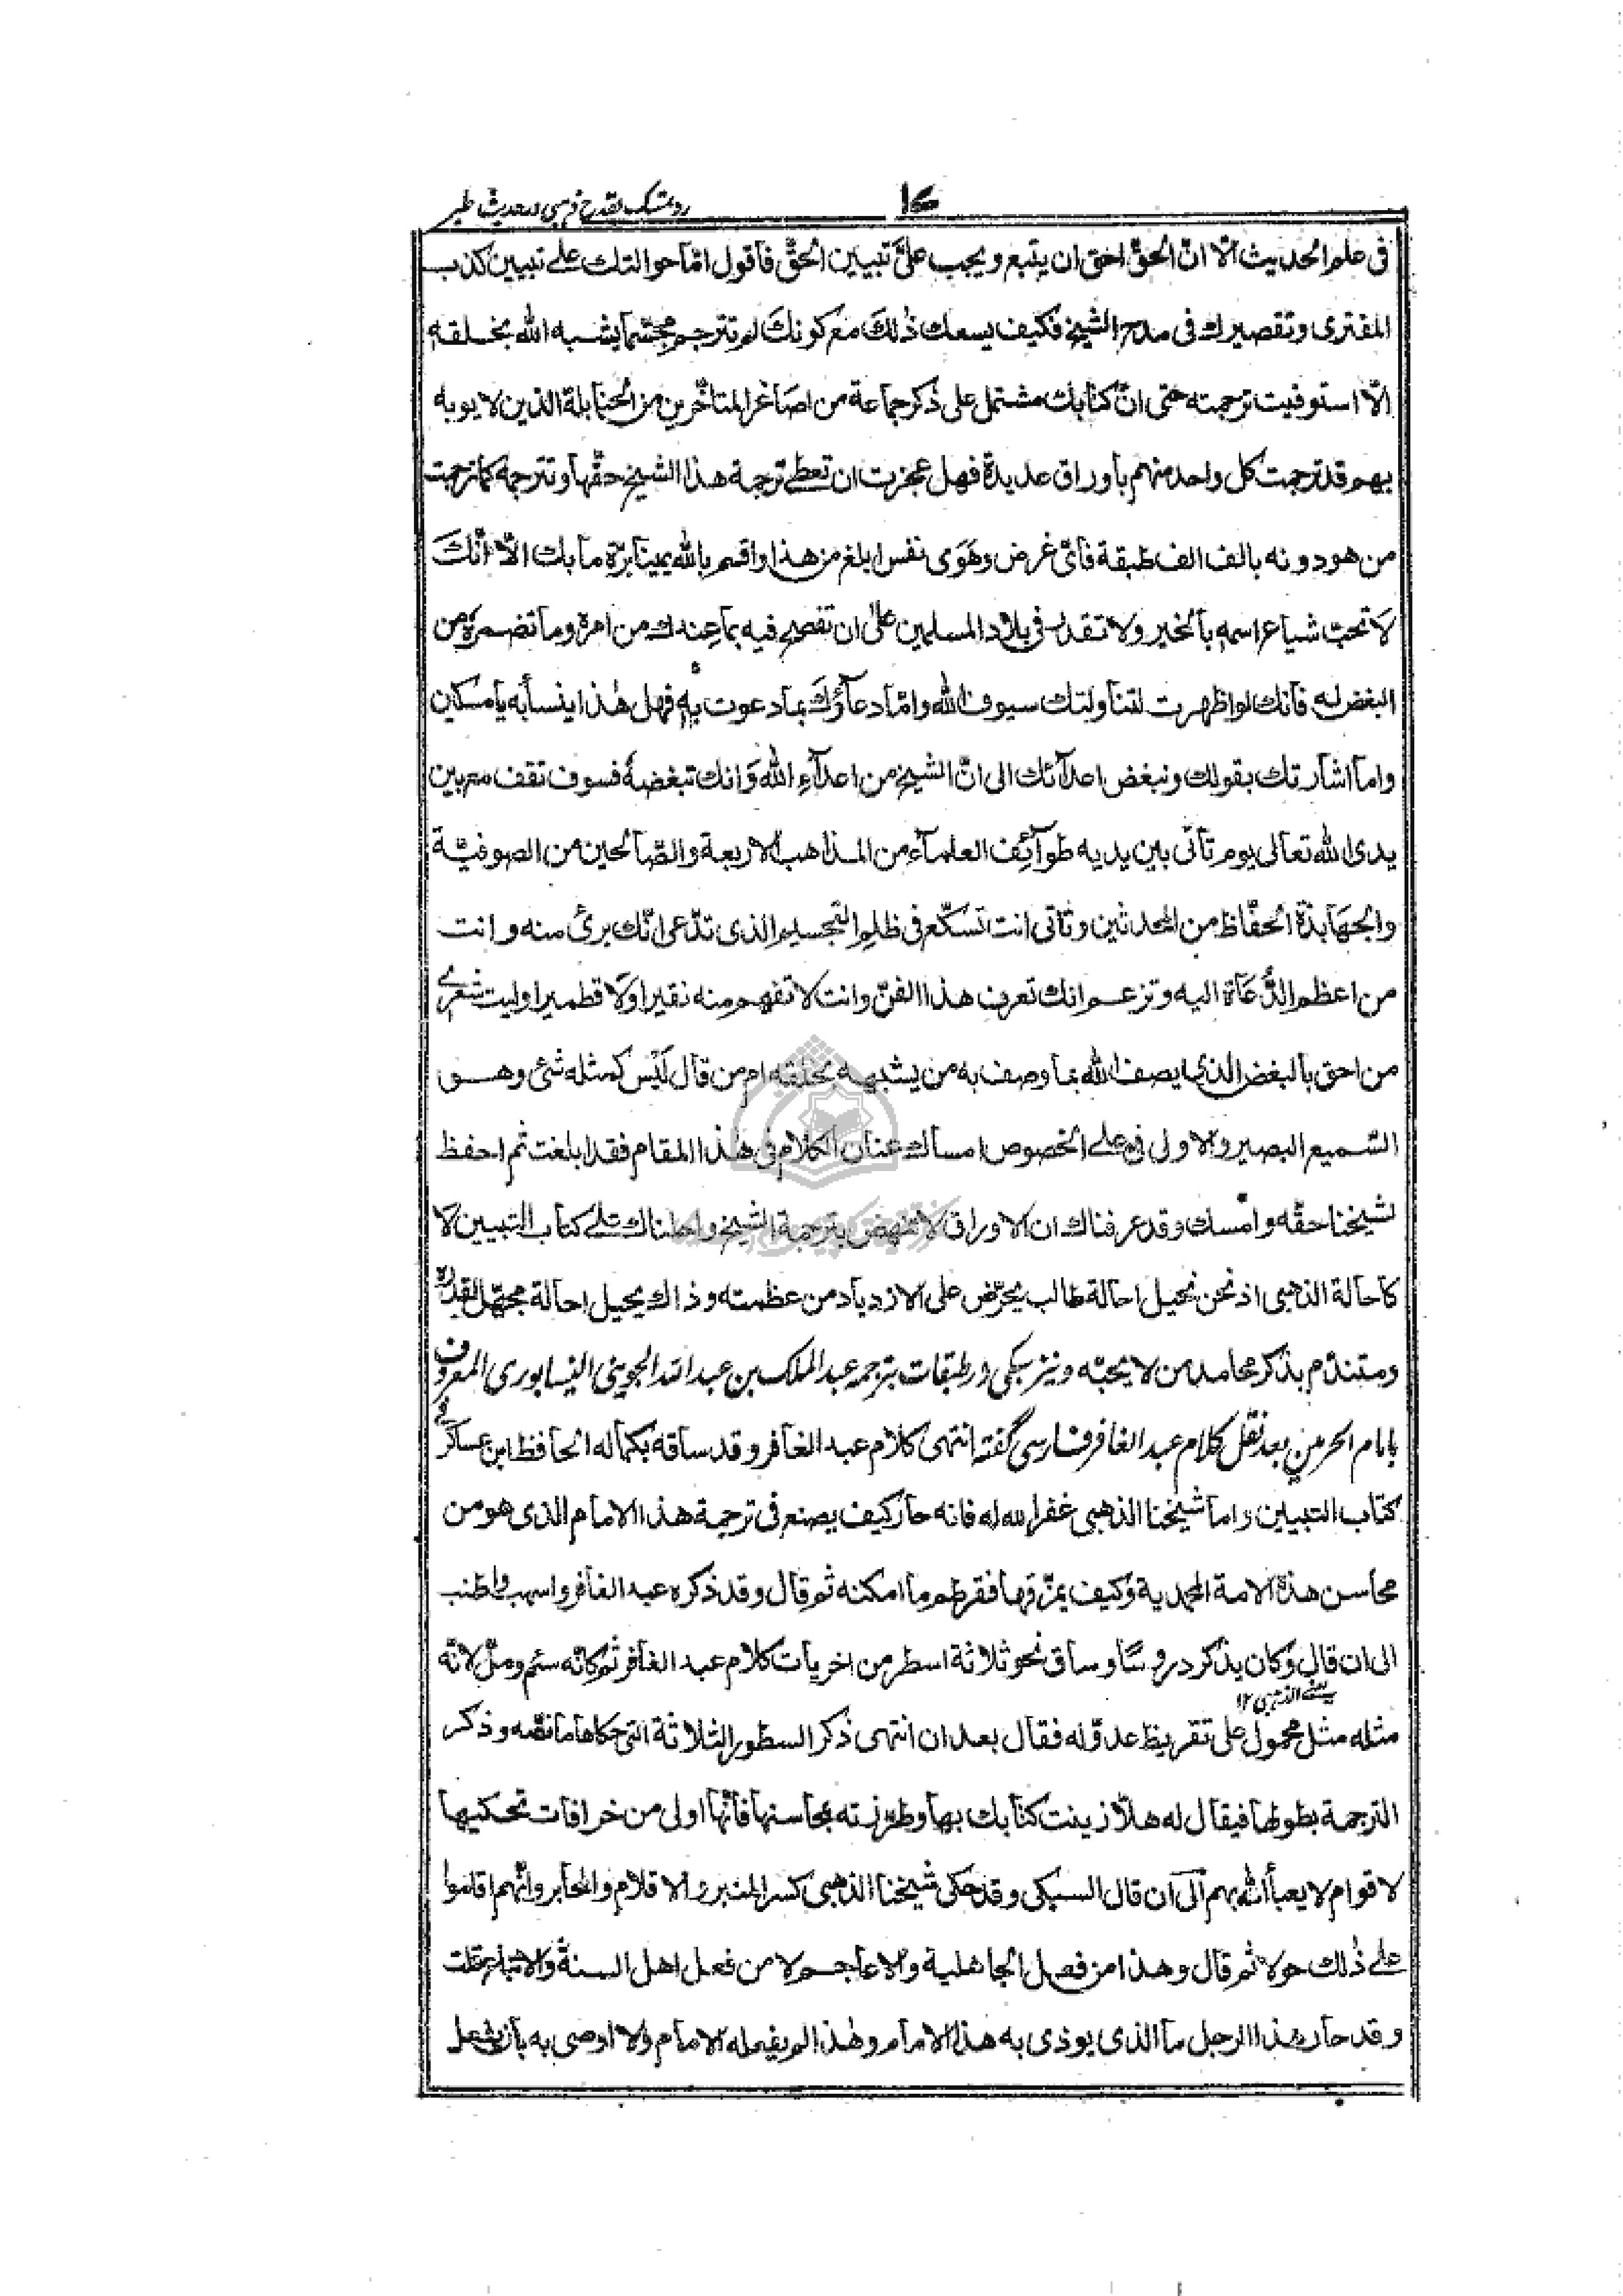 رد تمسک بقدح ذهبی در حدیث طیر
فی علم الحدیث الّا انّ الحقّ احق ان یتبع ویجب علیّ تبیین الحقّ فاقول امّا حوالتك علے تبیین کذب
المفتری وتقصیرك فی مدح الشیخ فکیف یسعك ذٰلكَ مع کونكَ لم تترجم مجسّما یشبه الله بخلقه
الّا استوفیت ترجمته حتی انّ کتابك مشتمل علی ذکر جماعة من اصاغر المتاخّرین من الحنابلة الذین لا یوبه
بهم قد ترجمت کل واحد منهم باوراق عدیدة فهل عجزت ان تعطے ترجمة هذا الشیخ حقّها وتترجمه کما ترجمت
من هو دونه بالف الف طبقة فایّ غرض وهَوَی نفس ابلغ من هذا واقسم بالله یمینا برّة ما بك الّا انّكَ
لا تحبّ شیاع اسمه بالخیر ولا تقدر فی بلاد المسلمین علیٰ ان تفصح فیه بما عندك من امره وما تضمره من
البغض له فانك لو اظهرت لتناولتك سیوف الله وامّا دعاؤكَ بما دعوت به فهل هٰذا ینسأبه یا مسکین
واما اشارتك بقولك ونبغض اعدائك الی انّ الشیخ من اعدآءِ الله وَانك تبغضهٗ فسوف تقف معه بین
یدی الله تعالی یوم تأتی بین یدیه طوآئِف العلمآء من المذاهب الاربعة والصّالحین من الصوفیّة
والجهَابذة الحفّاظ من المحدثین وتاتی انت تسکّع فی ظلم التجسیم الذی تدّعی انّك بریٔ منه وانت
من اعظم الدُّعاة الیه وتزعم انك تعرف هذا الفنّ وانت لا تفهم منه نقیرا ولَا قطمیرا ولیت شعرے
من احق بالبغض الذی یصف الله بما وصف به من یشبهه بخلقه ام من قال لَیْس کمثله شئ وهو
السّمیع البصیر والاولی فی علے الخصوص امساك عنان الکلام فی هٰذا المقام فقد ابلغت ثم احفظ
لشیخنا حقّه وامْسك وقد عرفناك ان الاوراق لا تنهض بترجمة الشیخ واحلناك علے کتاب التبیین لَا
کاحالة الذهبی اذ نحن نحیل احالة طالب یحرّض علی الازدیاد من عظمته وذاك یحیل احالة مجهّل لقدره
ومتندّم بذکر محامد من لا یحبّه ونیز سبکی در طبقات بترجمه عبد الملک بن عبد الله الجوینی النیسابوری المعروف
بامام الحرمین بعد نقل کلام عبد الغافر فارسی گفته انتهی کلام عبد الغافر وقد ساقه بکماله الحافظ ابن عساکر فی
کتاب التبیین واما شیخنا الذهبی غفر الله له فانه حار کیف یصنع فی ترجمة هذا الامام الذی هو من
محاسن هذه الامة المحمدیة وَکیف یمزّقها فقرطم ما امکنه ثم قال وقد ذکره عبد الغافر واسهب واطنب
الی ان قال وکان یذکر دروسًا وساق نحو ثلاثة اسطر من اخریات کلام عبد الغافر ثم کانّه سئم ومل لانّه
یعنے الذهبی ۱۲
مثله مثل محمول علی تقریظ عدوّ له فقال بعد ان انتهی ذکر السطور الثلاثة التی حکاها ما نصّه وذکر
الترجمة بطولها فیقال له هلّا زینت کتابك بها وطرّزته بمحاسنها فانّها اولی من خرافات تحکیها
لاقوام لا یعبأ الله بهم الی ان قال السبکی وقد حکی شیخنا الذهبی کسر المنبر والاقلام والمحابر وانّهم اقاموا
علے ذٰلك حولا ثم قال وهذا من فعل الجاهلیة والاعاجم لا من فعل اهل السنة والاتباع قلت
وقد حار هذا الرجل ما الذی یوذی به هذا الامام وهٰذا لم یفعله الامام ولا اوصی به بان یفعل